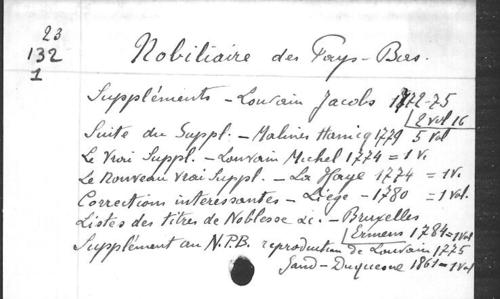 23
132
1
Nobiliaire des Pays-Bas.
Suppléments - Louvain Jacobs 1772-75
2 Vol 16
Suite du Suppl. - Malines Hanicq 1779 5 Vol
Le Vrai Suppl. - Louvain Michel 1774 = 1 V.
Le Nouveau vrai Suppl. - La Haye 1774 = 1 V.
Corrections intéressantes - Liège - 1780 = 1 Vol.
Listes des titres de Noblesse &c. - Bruxelles
Ermens 1784 = 1 Vol
Supplément au N.P.B. reproduction de Louvain 1775
Gand - Duquesne 1861 = 1 Vol